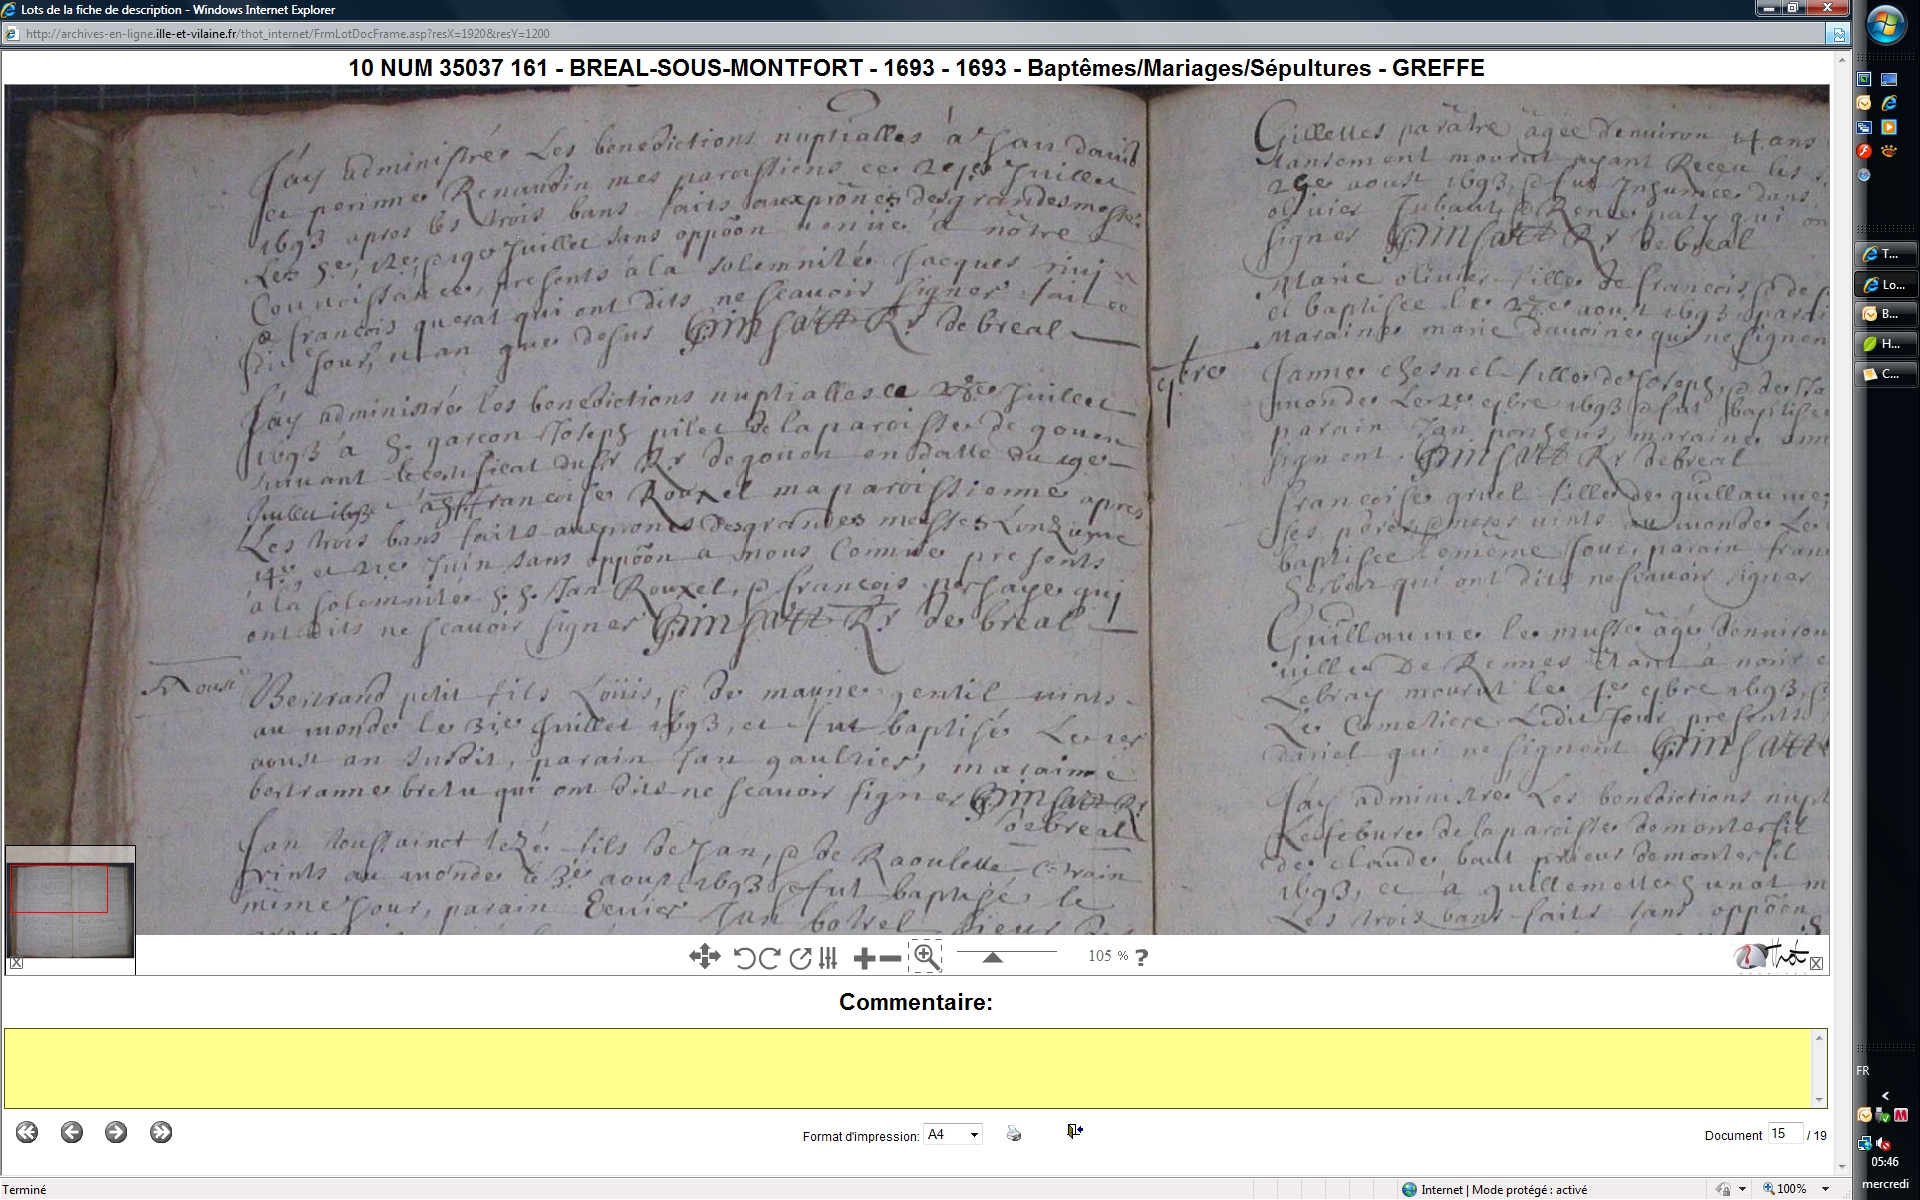 Lots de la fiche de description - Windows Internet Explorer
http://archives-en-ligne.ille-et-vilaine.fr/thot_internet/FrmLotDocFrame.asp?resX=1920&resY=1200
10 NUM 35037 161 - BREAL-SOUS-MONTFORT - 1693 - 1693 - Baptêmes/Mariages/Sépultures - GREFFE
Jay administré Les benedictions nuptialles à Jan david
et perinne Renaudin mes paroissiens ce 21e Juillet
1693 apres les trois bans faits aux prônes des grandes messes
Les 5e, 12e, et 19e Juillet sans oppôon venüe à nôtre
Connoissance, presents à la solemnité Jacques
et francois querat qui ont dits ne scauoir signer fait ce
dit Jour, et an que desus Rr de breal
Jay administré les benedictions nuptialles ce 28e Juillet
1693 à h. garcon Joseph pilet de la paroisse de gouen
suiuant le certificat du sr Rr de gouen en datte du 19e
Juillet 1693 à francoise Rouxel ma paroissienne apres
Les trois bans faits aux prones des grandes messes L'onzieme
14e, et 21e Juin sans oppôon a nous Connüe presents
à la solemnité h. h. Jan Rouxel, et francois persage qui
ont dits ne scauoir signer Rr de breal
Aoust
Bertrand petit fils Loüis, et de maurie gentil uints
au monde le 31e Juillet 1693, et fut baptisé Le 1er
aoust an susdit, parain Jan gaultier, maraine
bertranne bretu qui ont dits ne scauoir signer Rr
de breal
Jan toussainct tezé fils de Jan, et de Raoulette
uints au monde le 3e aoust 1693 et fut baptisé le
même Jour, parain Ecuier Jan botrel sieur de
Gillettes parâtre âgée denuiron 4 ans
mourut ayant Receu les
29e aoust 1693, et fut Inhumée dans
oliuier Jubaut, et Rene paty qui on
signer Rr de breal
Marie oliuier fille de francois, et de
et baptisée le 27e aoust 1693 parai
maraine marie dauoine qui ne signen
7bre
Janne chesnel fille de Joseph, et de
monde Le 1er 7bre 1693 et fut baptisée
parain Jan maraine
signent Rr de breal
francoise gruel fille de guillaume
ses pere, et mere uints au monde Le
baptisée le même Jour, parain fran
qui ont dits ne scauoir signer
Guillaume le musse âgé denuiron
uille De Rennes étant à nour
Lebray mourut le 4e 7bre 1693,
Le Cometiere Ledit Jour presents
daniel qui ne signent
Jay administré Les benedictions nupt
Lefebure de la paroisse de monterfil
de claude baut prieur de monterfil
1693, et à guillemette hunot m
Les trois bans faits sans oppôon
105 %
?
Thot
Commentaire:
Format d'impression: A4
Document 15 / 19
Terminé
Internet | Mode protégé : activé
100%
T...
Lo...
B...
H...
C...
FR
05:46
mercredi